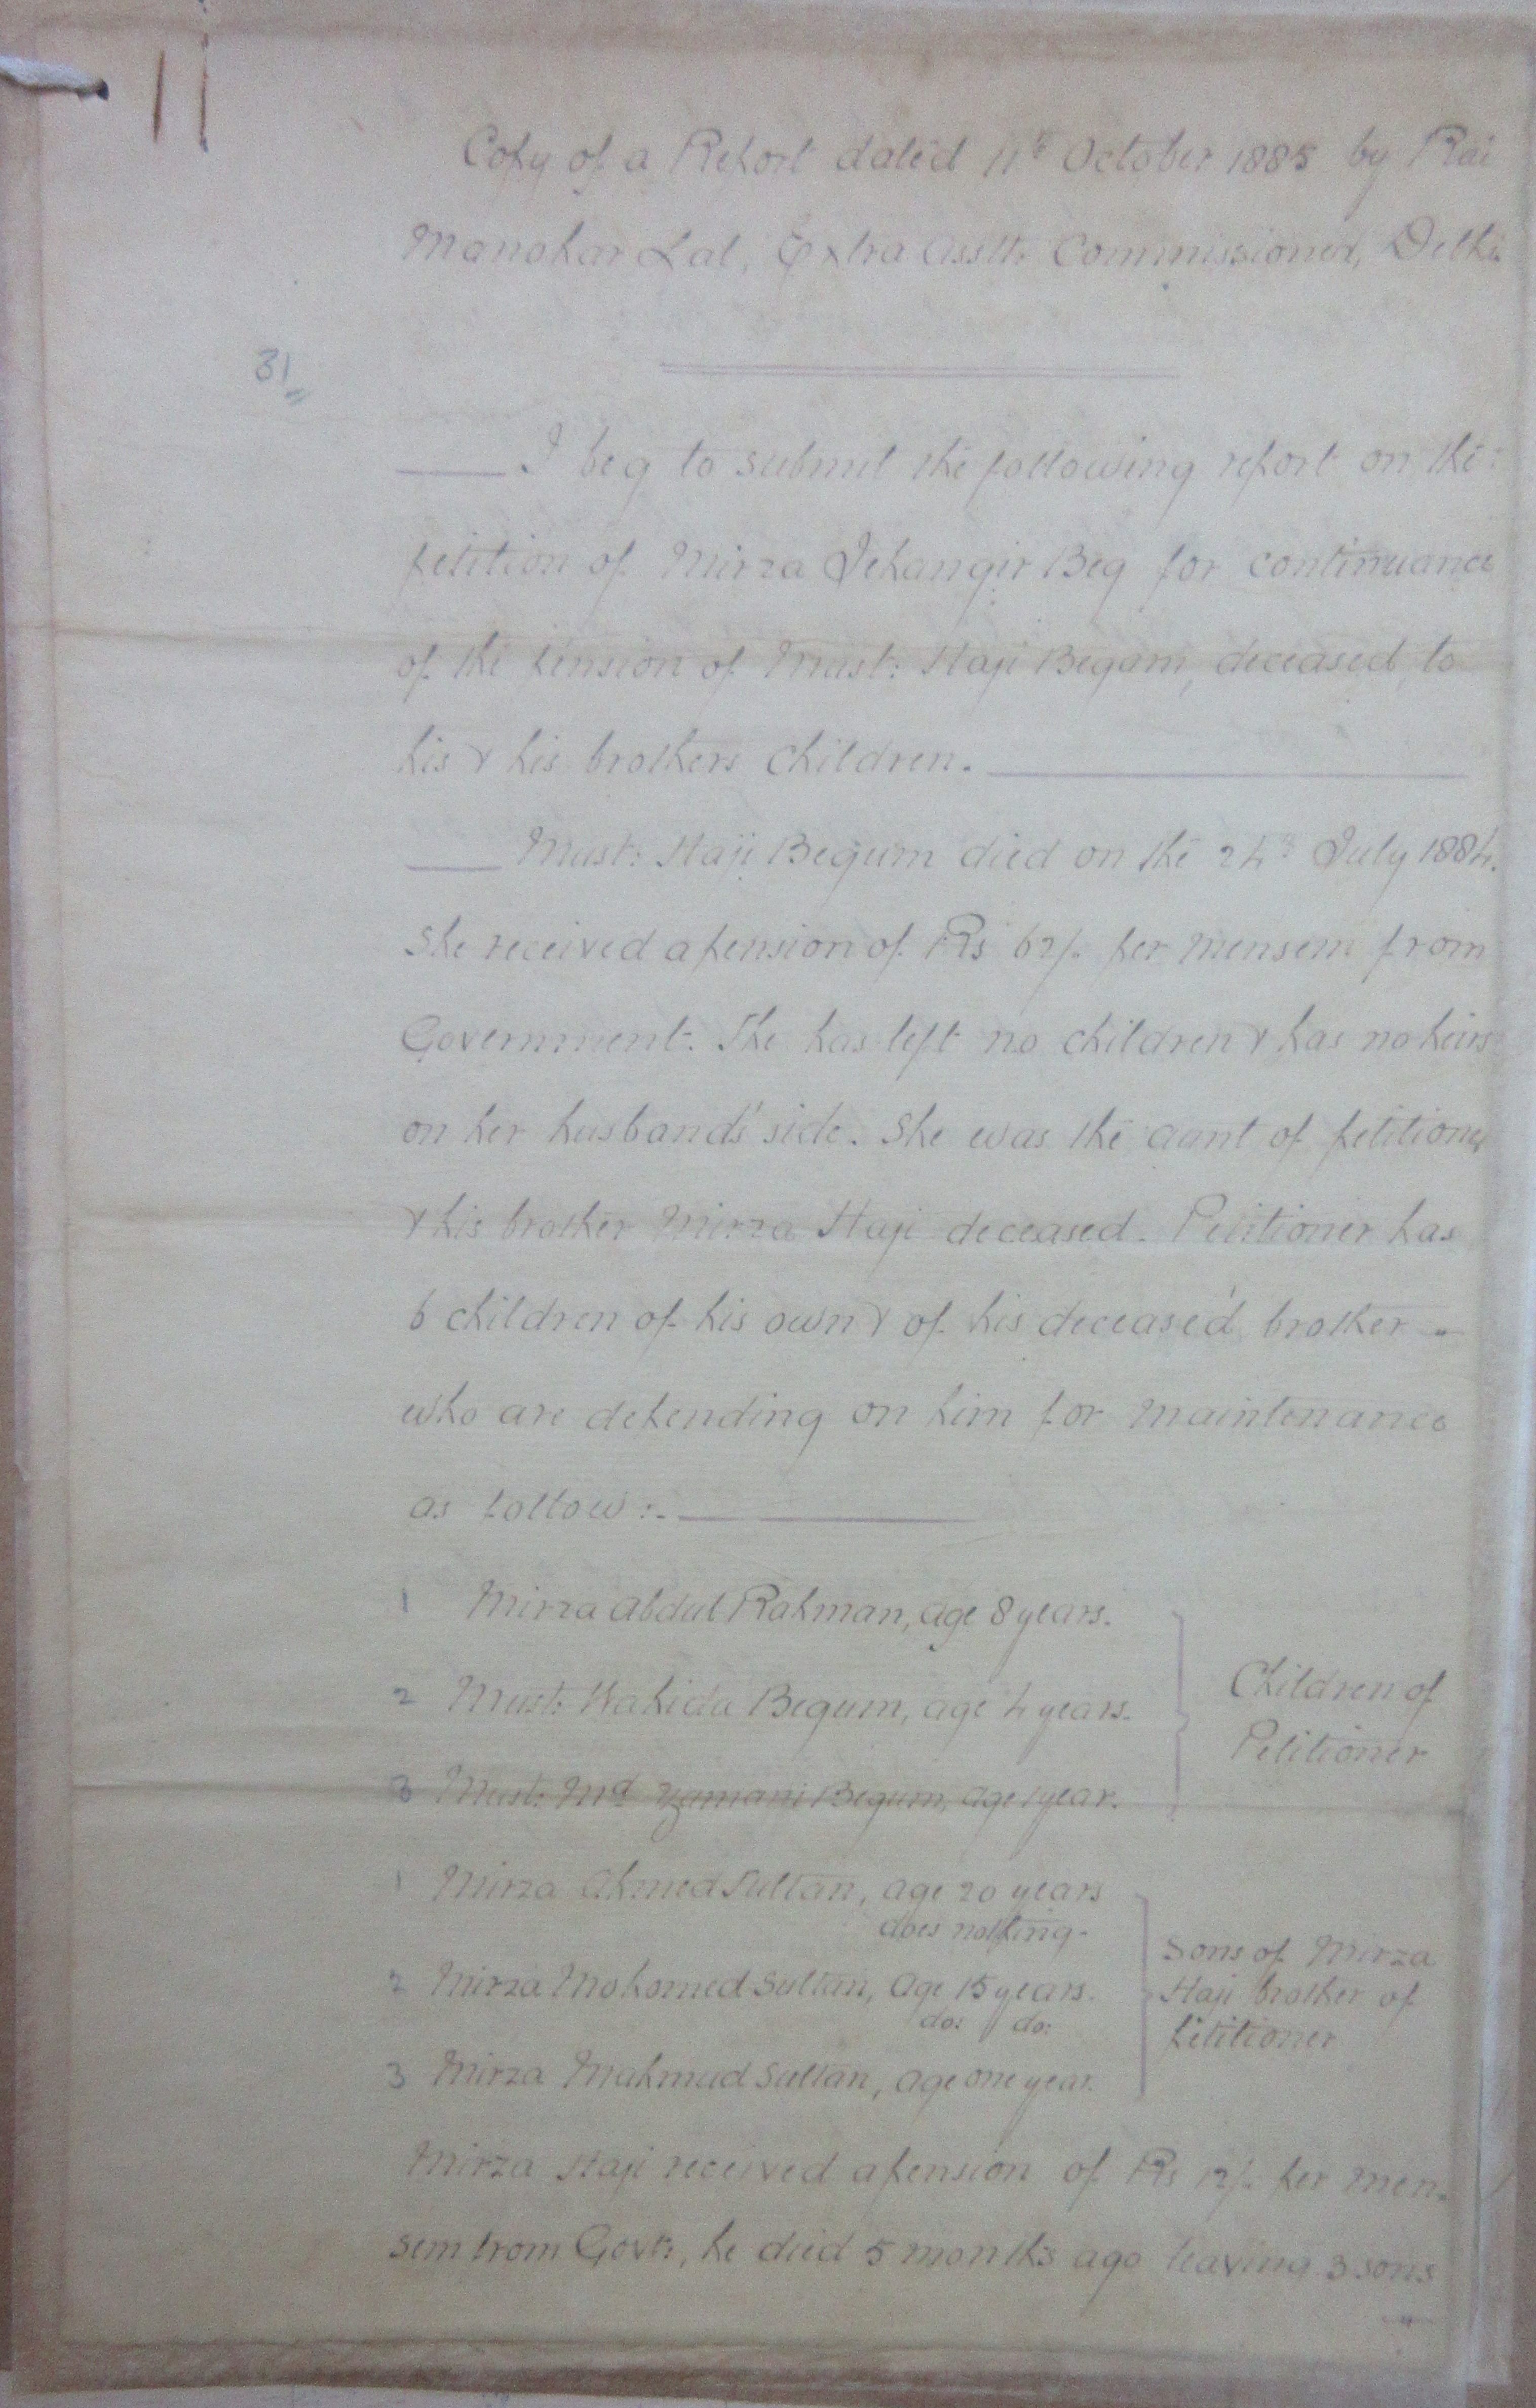 11
Copy of a Report dated 11th October 1885 by Rai
Manohar Lal, Extra Asstt: Commissioner, Delhi
31
I beg to submit the following report on the
petition of Mirza Jehangir Beg for continuance
of the pension of Must: Haji Begam, deceased, to
his & his brothers children.
Must: Haji Begum died on the 24th July 1884.
She received a pension of Rs 62/- per mensem from
Government. She has left no children & has no heirs
on her husband's side. She was the aunt of petitioner
& his brother Mirza Haji deceased. Petitioner has
6 children of his own & of his deceased brother -
who are depending on him for maintenance
as follow:-
1 Mirza Abdul Rahman, age 8 years.
2 Must: Wahida Begum, age 4 years.
Children of
Petitioner
3 Must: Md Zamani Begum, age 1 year.
1 Mirza Ahmed Sultan, age 20 years
does nothing.
2 Mirza Mohomed Sultan, age 15 years.
do: do:
3 Mirza Mahmud Sultan, age one year.
Sons of Mirza
Haji brother of
petitioner
Mirza Haji received a pension of Rs 12/- per men-
sem from Govt:, he died 5 months ago leaving 3 sons